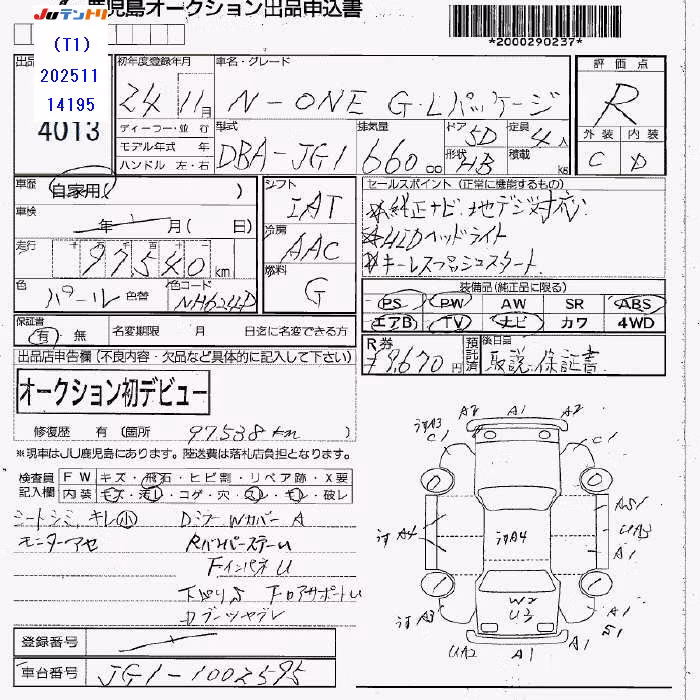 JUテントリ 鹿児島オークション出品申込書
*2000290237*
(T1)
202511
14195
4013
出品
初年度登録年月
24 11月
車名・グレード
N-ONE G・Lパッケージ
評価点
R
外装 内装
C D
ディーラー・並 行
モデル年式 年
ハンドル 左・右
型式
DBA-JG1
排気量
660 cc
ドア 5D
形状 HB
定員 4人
積載 kg
車歴 自家用( )
車検 年 月( 日)
走行 十 万 千 百 十 一
97540 km
色 パール 色替
色コード NH624P
シフト
IAT
冷房
AAC
燃料
G
セールスポイント (正常に機能するもの)
純正ナビ・地デジ対応
HIDヘッドライト
キーレスプッシュスタート
装備品(純正品に限る)
PS PW AW SR ABS
エアB TV ナビ カワ 4WD
保証書
有 無
名変期限 月 日迄に名変できる方
R券
¥9,670円
預託済
後日品
取説・保証書
出品店申告欄(不良内容・欠品など具体的に記入して下さい)
オークション初デビュー
修復歴 有 (箇所 97538km
※現車はJU鹿児島にあります。陸送費は落札店負担となります。
検査員記入欄
FW キズ・飛石・ヒビ割・リペア跡・X要
内装 キズ・汚レ・コゲ・穴・スレ・キレ・破レ
シートシミ、キレ(小) Dミラー WカバーA
モニターアセ RバンパーステーU
FインパネU
下廻りS FロアサポートU
Dブーツヤブレ
登録番号
車台番号 JG1-1002595
A2 A1 A2
A3 C1 C1
0 0
A4 A4 A51 UA3 A1
1 1
W2
U3
A3 A1 A1
UA2 A1 A1